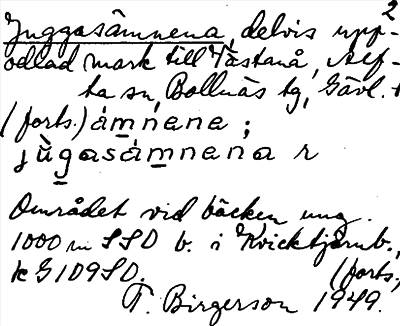 2
Juggasämnena, delvis upp-
odlad mark till Västanå, Alf-
ta sn, Bollnäs tg, Gävl. l
(forts.) ámnena ;
jùgasámnena r
Området vid bäcken ung.
1000 m SSO b. i Kvicktjärnb.,
k G109SO. (forts.,
T. Birgerson 1949.